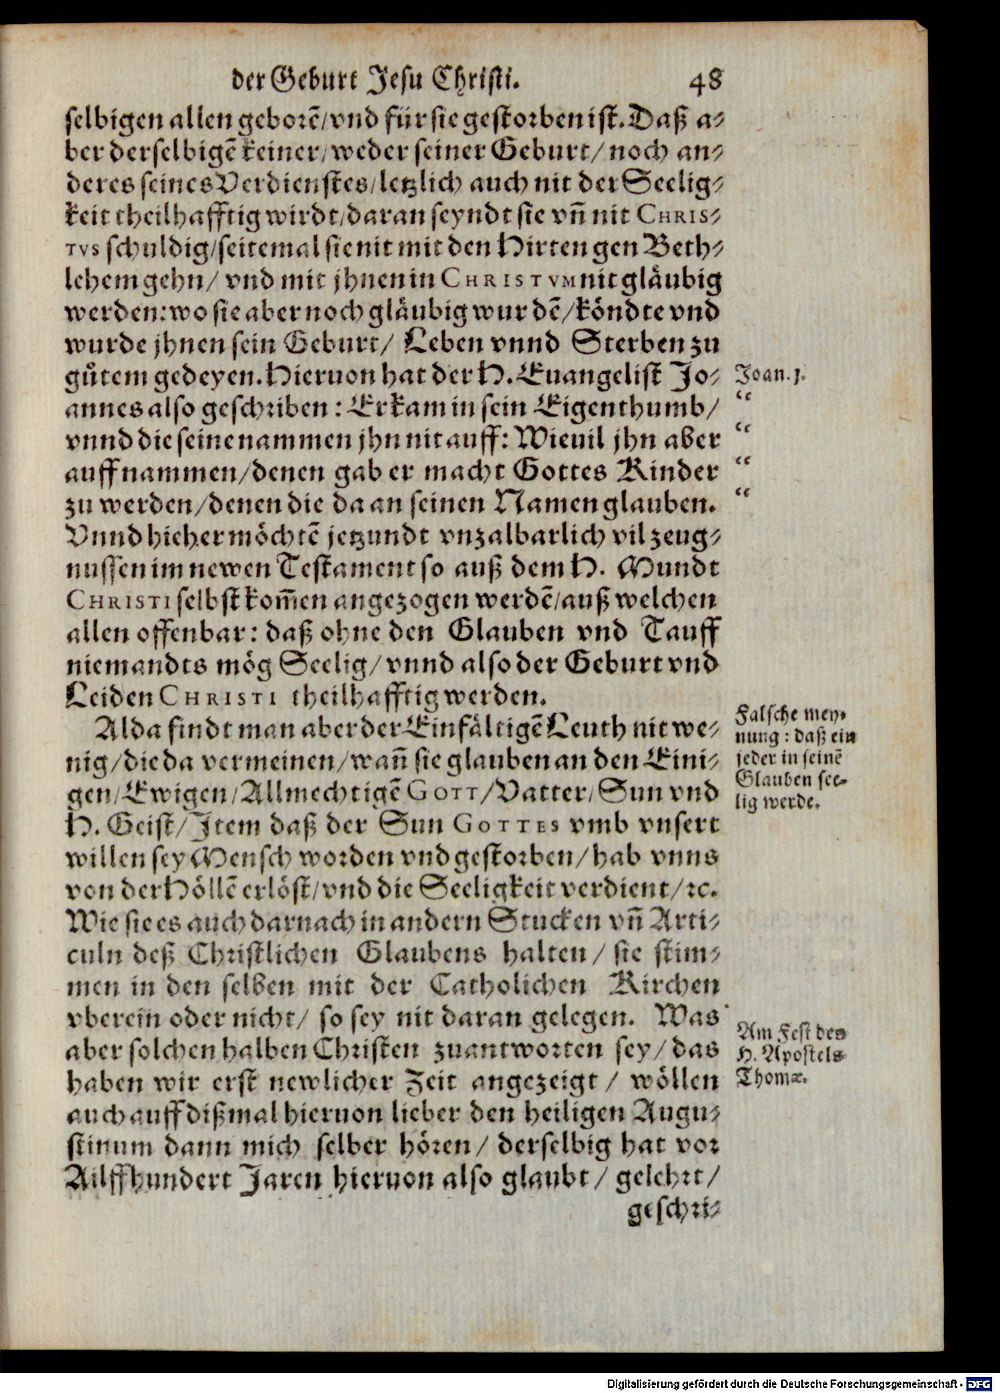 der Geburt Jesu Christi. 48
selbigen allen geborē/vnd für sie gestorben ist. Daß a⸗
ber derselbigē keiner/weder seiner Geburt/noch an⸗
deres seines Verdienstes/letzlich auch nit der Seelig⸗
keit theilhafftig wirdt/daran seyndt sie vn̄ nit CHRIS⸗
TVS schuldig/seitemal sie nit mit den Hirten gen Beth⸗
lehem gehn/ vnd mit jhnen in CHRISTVM nit gläubig
werden: wo sie aber noch gläubig wurdē/köndte vnd
wurde jhnen sein Geburt/ Leben vnnd Sterben zu
gůtem gedeyen. Hieruon hat der H. Euangelist Jo⸗
annes also geschriben: Er kam in sein Eigenthumb/
vnnd die seine nammen jhn nit auff: Wieuil jhn aber
auffnammen/denen gab er macht Gottes Kinder
zu werden/denen die da an seinen Namen glauben.
Vnnd hieher möchtē jetzundt vnzalbarlich vil zeug⸗
nussen im newen Testament so auß dem H. Mundt
CHRISTI selbst kom̄en angezogen werdē/auß welchen
allen offenbar: daß ohne den Glauben vnd Tauff
niemandts mög Seelig/vnnd also der Geburt vnd
Leiden CHRISTI theilhafftig werden.
Joan. j.
“
“
“
“
Alda findt man aber der Einfältigē Leuth nit we⸗
nig/die da vermeinen/wan̄ sie glauben an den Eini⸗
gen/Ewigen/Allmechtigē GOTT/Vatter/Sun vnd
H. Geist/Item daß der Sun GOTTES vmb vnsert
willen sey Mensch worden vnd gestorben/hab vnns
von der Höllē erlöst/vnd die Seeligkeit verdient/ꝛc.
Wie sie es auch darnach in andern Stucken vn̄ Arti⸗
culn deß Christlichen Glaubens halten/ sie stim⸗
men in den selben mit der Catholichen Kirchen
vberein oder nicht/ so sey nit daran gelegen. Was
aber solchen halben Christen zuantworten sey/das
haben wir erst newlicher Zeit angezeigt/ wöllen
auch auff dißmal hieruon lieber den heiligen Augu⸗
stinum dann mich selber hören/ derselbig hat vor
Ailffhundert Jaren hieruon also glaubt/ gelehrt/
geschri⸗
Falsche mey⸗
nung: daß ein
jeder in seinē
Glauben see⸗
lig werde.
Am Fest des
H. Apostels
Thomæ.
Digitalisierung gefördert durch die Deutsche Forschungsgemeinschaft - DFG